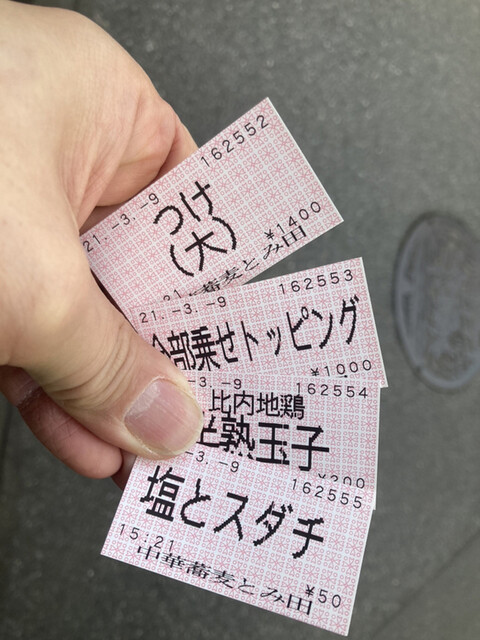 162552
21.-3.-9
つけ
(大)
¥1400
蕎麦とみ田
162553
21.-3.-9
全部乗せトッピング
¥1000
162554
-3.-9
比内地鶏
半熟玉子
¥200
162555
-3.-9
塩とスダチ
15:21
¥50
中華蕎麦とみ田